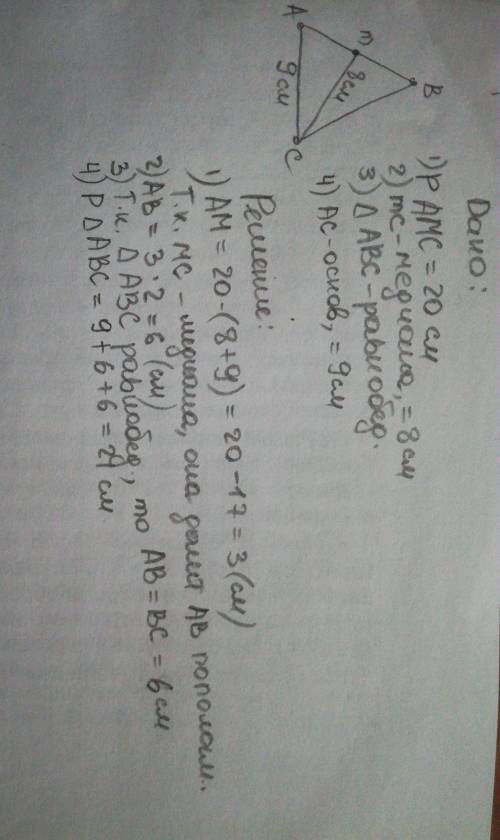 Дано:
1) P AMC = 20 см
2) mc - медиана, = 8 см
3) Δ ABC - равнобед.
4) AC - основ, = 9 см
A
m
B
8 см
9 см
C
Решение:
1) AM = 20 - (8+9) = 20 - 17 = 3 (см)
Т.к. MC - медиана, она делит AB пополам.
2) AB = 3 · 2 = 6 (см)
3) Т.к. Δ ABC равнобед, то AB = BC = 6 см
4) P Δ ABC = 9 + 6 + 6 = 21 см